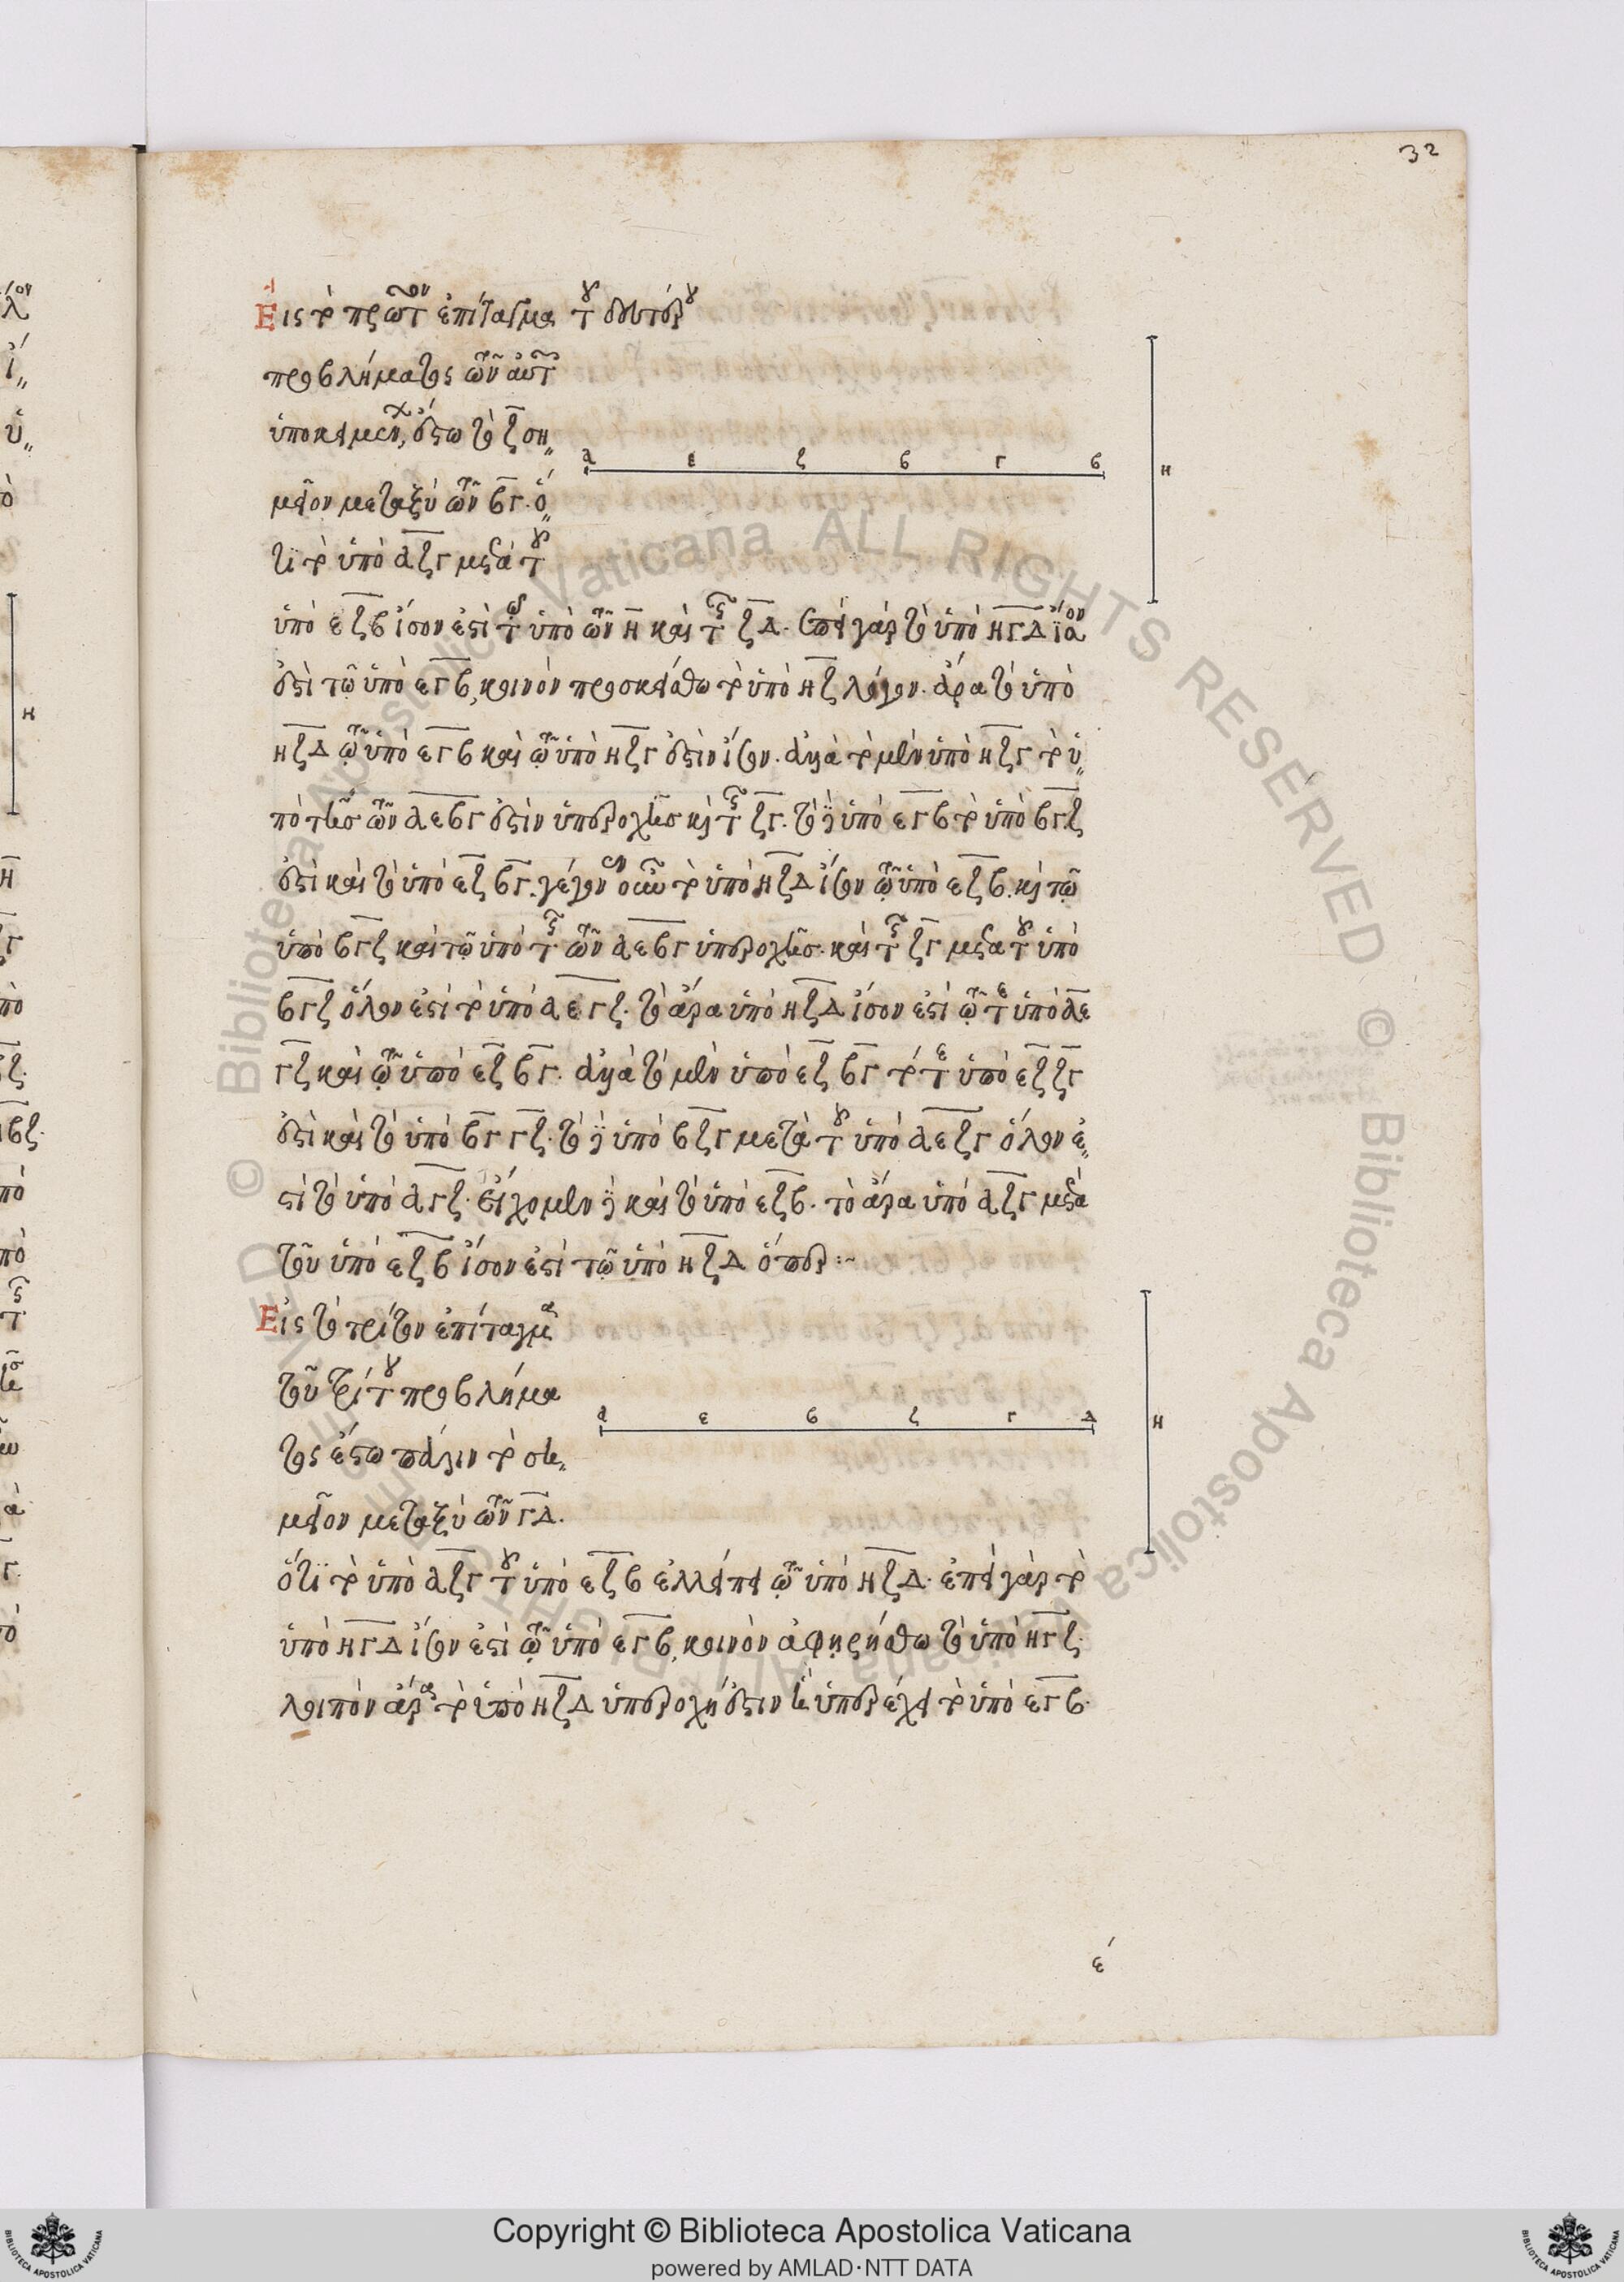 32
Εἰς τὸ πρῶτον ἐπίταγμα τοῦ δευτέρου
προβλήματος τῶν αὐτῶν
ὑποκειμένων, ἔστω τὸ ζ ση
μεῖον μεταξὺ τῶν βγ. ὅ
τι τὸ ὑπὸ αζγ μετὰ τοῦ
ὑπὸ εζβ ἴσον ἐστὶ τῷ ὑπὸ τῶν η καὶ τῆς ζδ. ἐπεὶ γὰρ τὸ ὑπὸ ηγδ ἴσον
ἐστὶ τῷ ὑπὸ εγβ, κοινὸν προσκείσθω τὸ ὑπὸ ηζ λόγον. ἄρα τὸ ὑπὸ
ηζδ τῷ ὑπὸ εγβ καὶ τῷ ὑπὸ ηζγ ἐστὶν ἴσον. ἀλλὰ τὸ μὲν ὑπὸ ηζγ τὸ ὑ
πὸ τῆς τῶν αεβγ ἐστὶν ὑπεροχῆς καὶ τῆς ζγ. τὸ δὲ ὑπὸ εγβ τὸ ὑπὸ βγζ
ἐστὶ καὶ τὸ ὑπὸ εζ βγ. γέγονεν οὖν τὸ ὑπὸ ηζδ ἴσον τῷ ὑπὸ εζβ. καὶ τῷ
ὑπὸ βγζ καὶ τῷ ὑπὸ τῆς τῶν αεβγ ὑπεροχῆς. καὶ τῆς ζγ μετὰ τοῦ ὑπὸ
βγζ ὅλον ἐστὶ τὸ ὑπὸ αεγζ. τὸ ἄρα ὑπὸ ηζδ ἴσον ἐστὶ τῷ τε ὑπὸ αε
γζ καὶ τῷ ὑπὸ εζ βγ. ἀλλὰ τὸ μὲν ὑπὸ εζ βγ τό τε ὑπὸ εζ ζγ
ἐστὶ καὶ τὸ ὑπὸ βγ γζ. τὸ δὲ ὑπὸ βζγ μετὰ τοῦ ὑπὸ αεζγ ὅλον ἐ
στὶ τὸ ὑπὸ αγζ. εἴχομεν δὲ καὶ τὸ ὑπὸ εζβ. τὸ ἄρα ὑπὸ αζγ μετὰ
τοῦ ὑπὸ εζβ ἴσον ἐστὶ τῷ ὑπὸ ηζδ ὅπερ :~
Εἰς τὸ τρίτον ἐπίταγμα
τοῦ τρίτου προβλήμα
τος ἔστω πάλιν τὸ ση
μεῖον μεταξὺ τῶν γδ.
ὅτι τὸ ὑπὸ αζγ τοῦ ὑπὸ εζβ ἐλλείπει τῷ ὑπὸ ηζδ. ἐπεὶ γὰρ τὸ
ὑπὸ ηγδ ἴσον ἐστὶ τῷ ὑπὸ εγβ, κοινὸν ἀφῃρήσθω τὸ ὑπὸ ηγζ.
λοιπὸν ἄρα τὸ ὑπὸ ηζδ ὑπεροχή ἐστιν ᾗ ὑπερέχει τὸ ὑπὸ εγβ.
α ε ζ β γ β
η
α ε β ζ γ δ
η
ε´
Copyright © Biblioteca Apostolica Vaticana
powered by AMLAD·NTT DATA